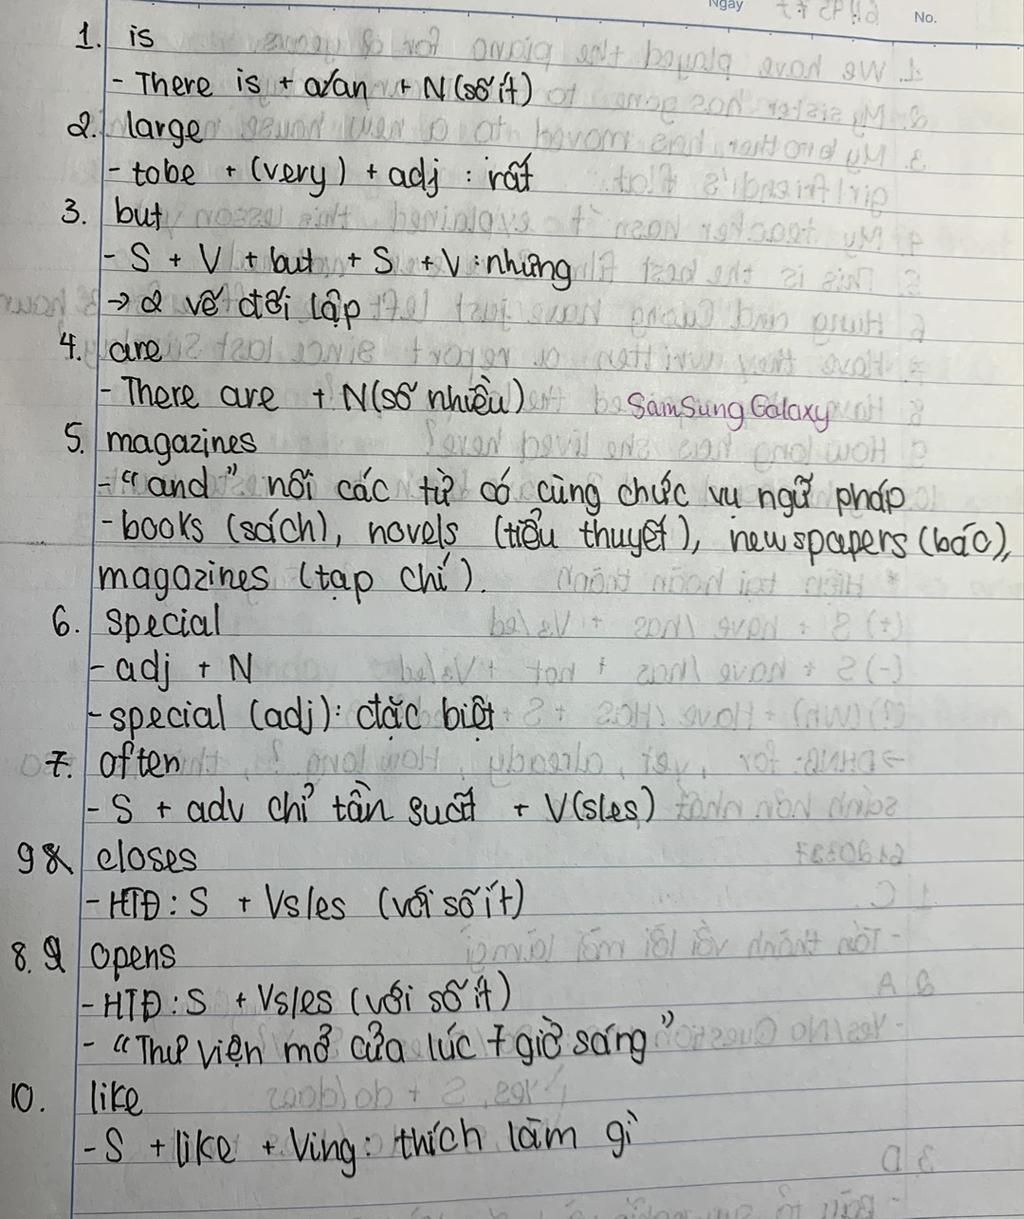 Ngày
No.
1. is
- There is + a/an + N (số ít)
2. large
- tobe + (very) + adj : rất
3. but
- S + V + but + S + V : nhưng
→ 2 vế đối lập
4. are
- There are + N (số nhiều)
SamSung Galaxy
5. magazines
- "and" nối các từ có cùng chức vụ ngữ pháp
- books (sách), novels (tiểu thuyết), newspapers (báo),
magazines (tạp chí).
6. special
- adj + N
- special (adj): đặc biệt
7. often
- S + adv chỉ tần suất + V(s/es)
9 closes
- HTĐ : S + Vs/es (với số ít)
8. opens
- HTĐ : S + Vs/es (với số ít)
- "Thư viện mở cửa lúc 7 giờ sáng"
10. like
- S + like + Ving : thích làm gì